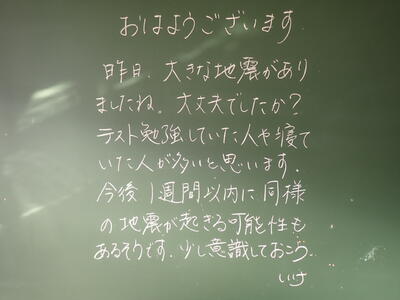 おはようございます
昨日、大きな地震があり
ましたね。大丈夫でしたか？
テスト勉強していた人や寝て
いた人が多いと思います。
今後1週間以内に同様
の地震が起きる可能性も
あるそうです。少し意識しておこう。
いけ